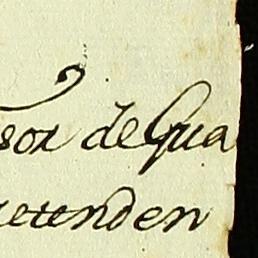 sor de Gua
retenden